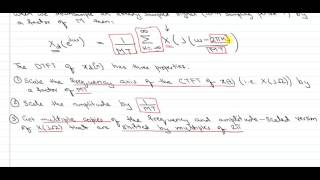 a factor of M then:
X_d(e^{jω}) = 1/MT ∞Σk=-∞ X(j(ω-2πk)/MT)
The DTFT of x_d(n) has three properties.
① Scale the frequency axis of the CTFT of x(t) (i.e. X(jΩ)) by
a factor of MT
② Scale the amplitude by 1/MT
③ Get multiple copies of the frequency and amplitude-scaled version
of X(jΩ) that are shifted by multiples of 2π